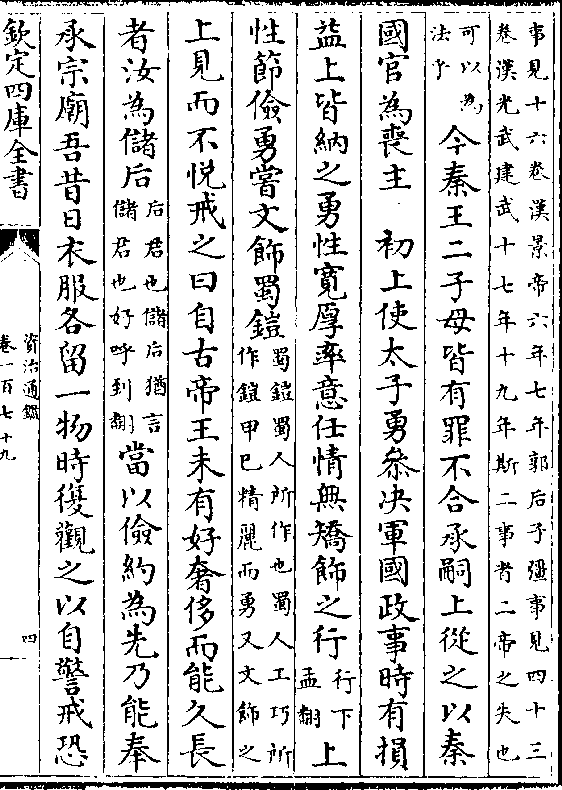 事見十六卷漢景帝六年七年郭后子彊事見四十三
卷漢光武建武十七年十九年斯二事者二帝之失也
可以為
法乎
今秦王二子母皆有罪不合承嗣上從之以秦
國官為喪主 初上使太子勇叅決軍國政事時有損
益上皆納之勇性寛厚率意任情無矯飾之行
行下
孟翻
上
性節儉勇嘗文飾蜀鎧
蜀鎧蜀人所作也蜀人工巧所
作鎧甲已精麗而勇又文飾之
上見而不悦戒之曰自古帝王未有好奢侈而能久長
者汝為儲后
后君也儲后猶言
儲君也好呼到翻
當以儉約為先乃能奉
承宗廟吾昔日衣服各留一物時復觀之以自警戒恐
欽定四庫全書
資治通鑑
卷一百七十九
四